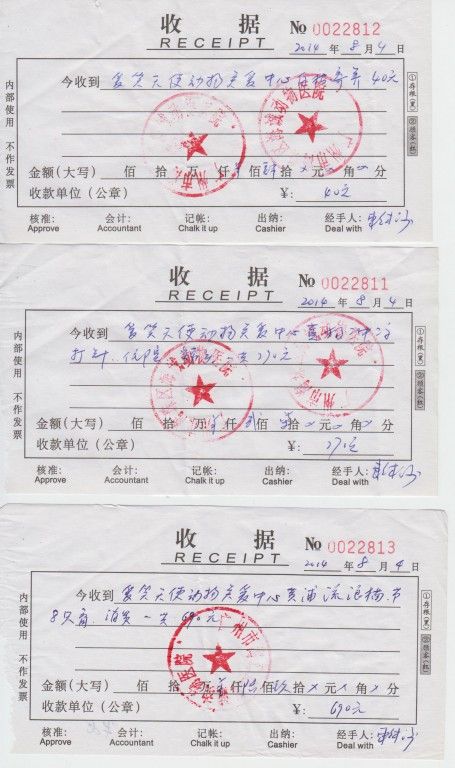 收 据 No 0022812
RECEIPT 2014 年 8 月 4 日
今收到 爱笑天使动物关爱中心 寄养 40元
金额(大写) 佰 拾 万 仟 佰 肆拾 元 角 分
收款单位(公章) ¥: 40元
核准: 会计: 记帐: 出纳: 经手人:
Approve Accountant Chalk it up Cashier Deal with
内部使用 不作发票
①存根(黑)
②顾客(红)
收 据 No 0022811
RECEIPT 2014 年 8 月 4 日
今收到 爱笑天使动物关爱中心
打针 一共270元
金额(大写) 佰 拾 万 仟 贰佰 柒拾 元 角 分
收款单位(公章) ¥: 270
核准: 会计: 记帐: 出纳: 经手人:
Approve Accountant Chalk it up Cashier Deal with
内部使用 不作发票
①存根(黑)
②顾客(红)
收 据 No 0022813
RECEIPT 2014 年 8 月 4 日
今收到 爱笑天使动物关爱中心黄浦流浪猫
8只 消炎 一共690元
金额(大写) 佰 拾 万 仟 陆佰玖拾 元 角 分
收款单位(公章) ¥: 690元
核准: 会计: 记帐: 出纳: 经手人:
Approve Accountant Chalk it up Cashier Deal with
内部使用 不作发票
①存根(黑)
②顾客(红)